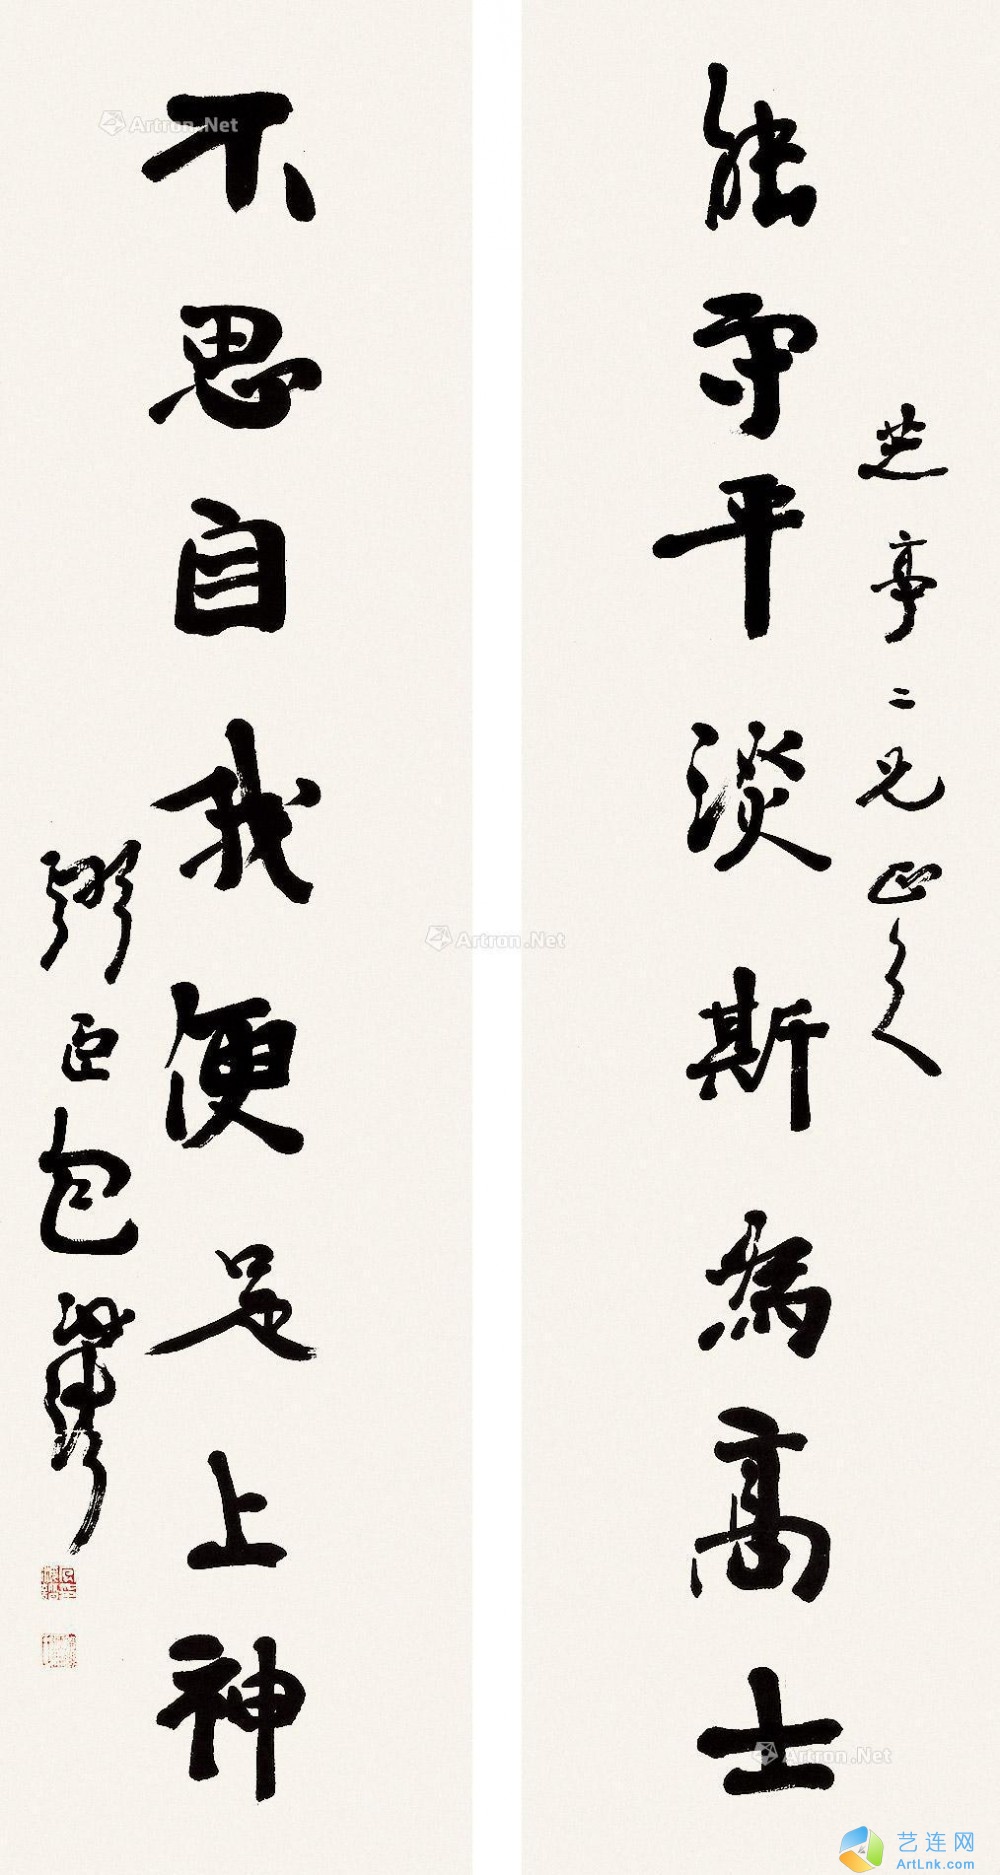 芝亭二兄正
能守平淡斯為高士
不思自我便足上神
Artron.Net
Artron.Net
Artron.Net
艺连网
ArtLnk.com